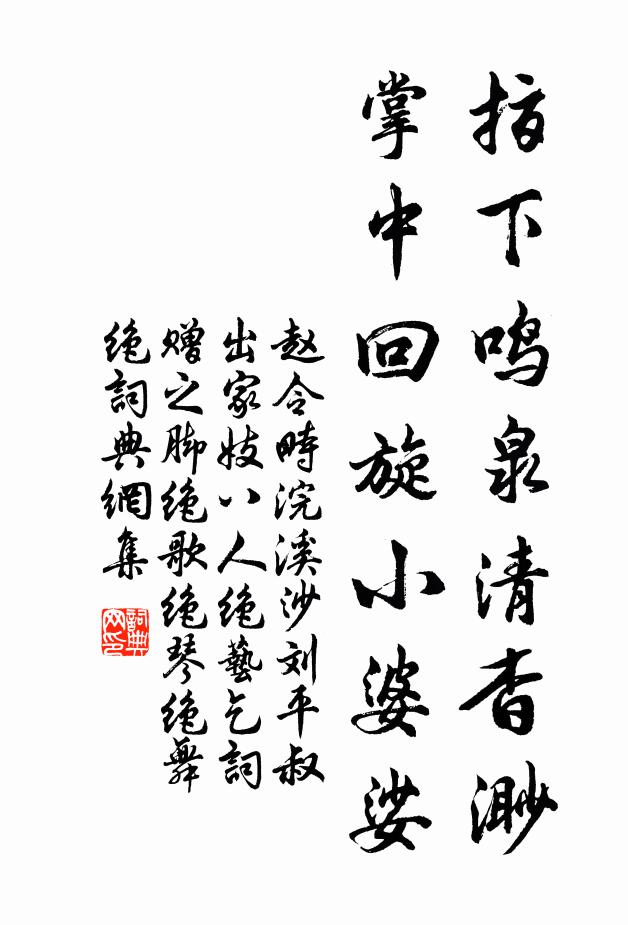 指下鸣泉清杳渺
掌中回旋小婆娑
赵令畤浣溪沙刘平叔
出家妓八人绝艺乞詞
赠之脚绝歌绝琴绝舞
绝詞典網集
詞典网印